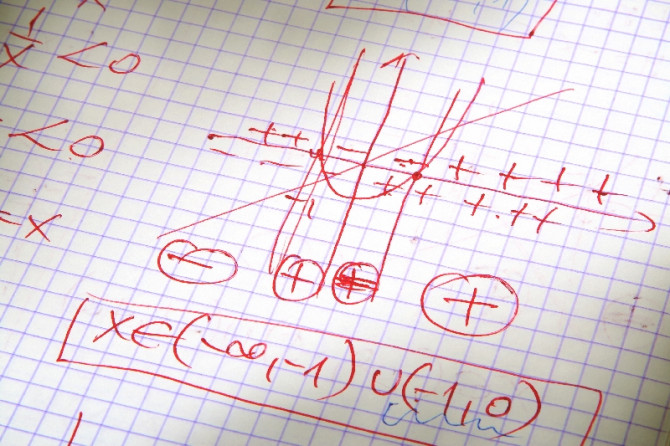 x < 0
< 0
-x
++ - -- + + + +
-- - ++ ++++
-1
- + + +
x∈(-∞,-1)∪(-1,0)